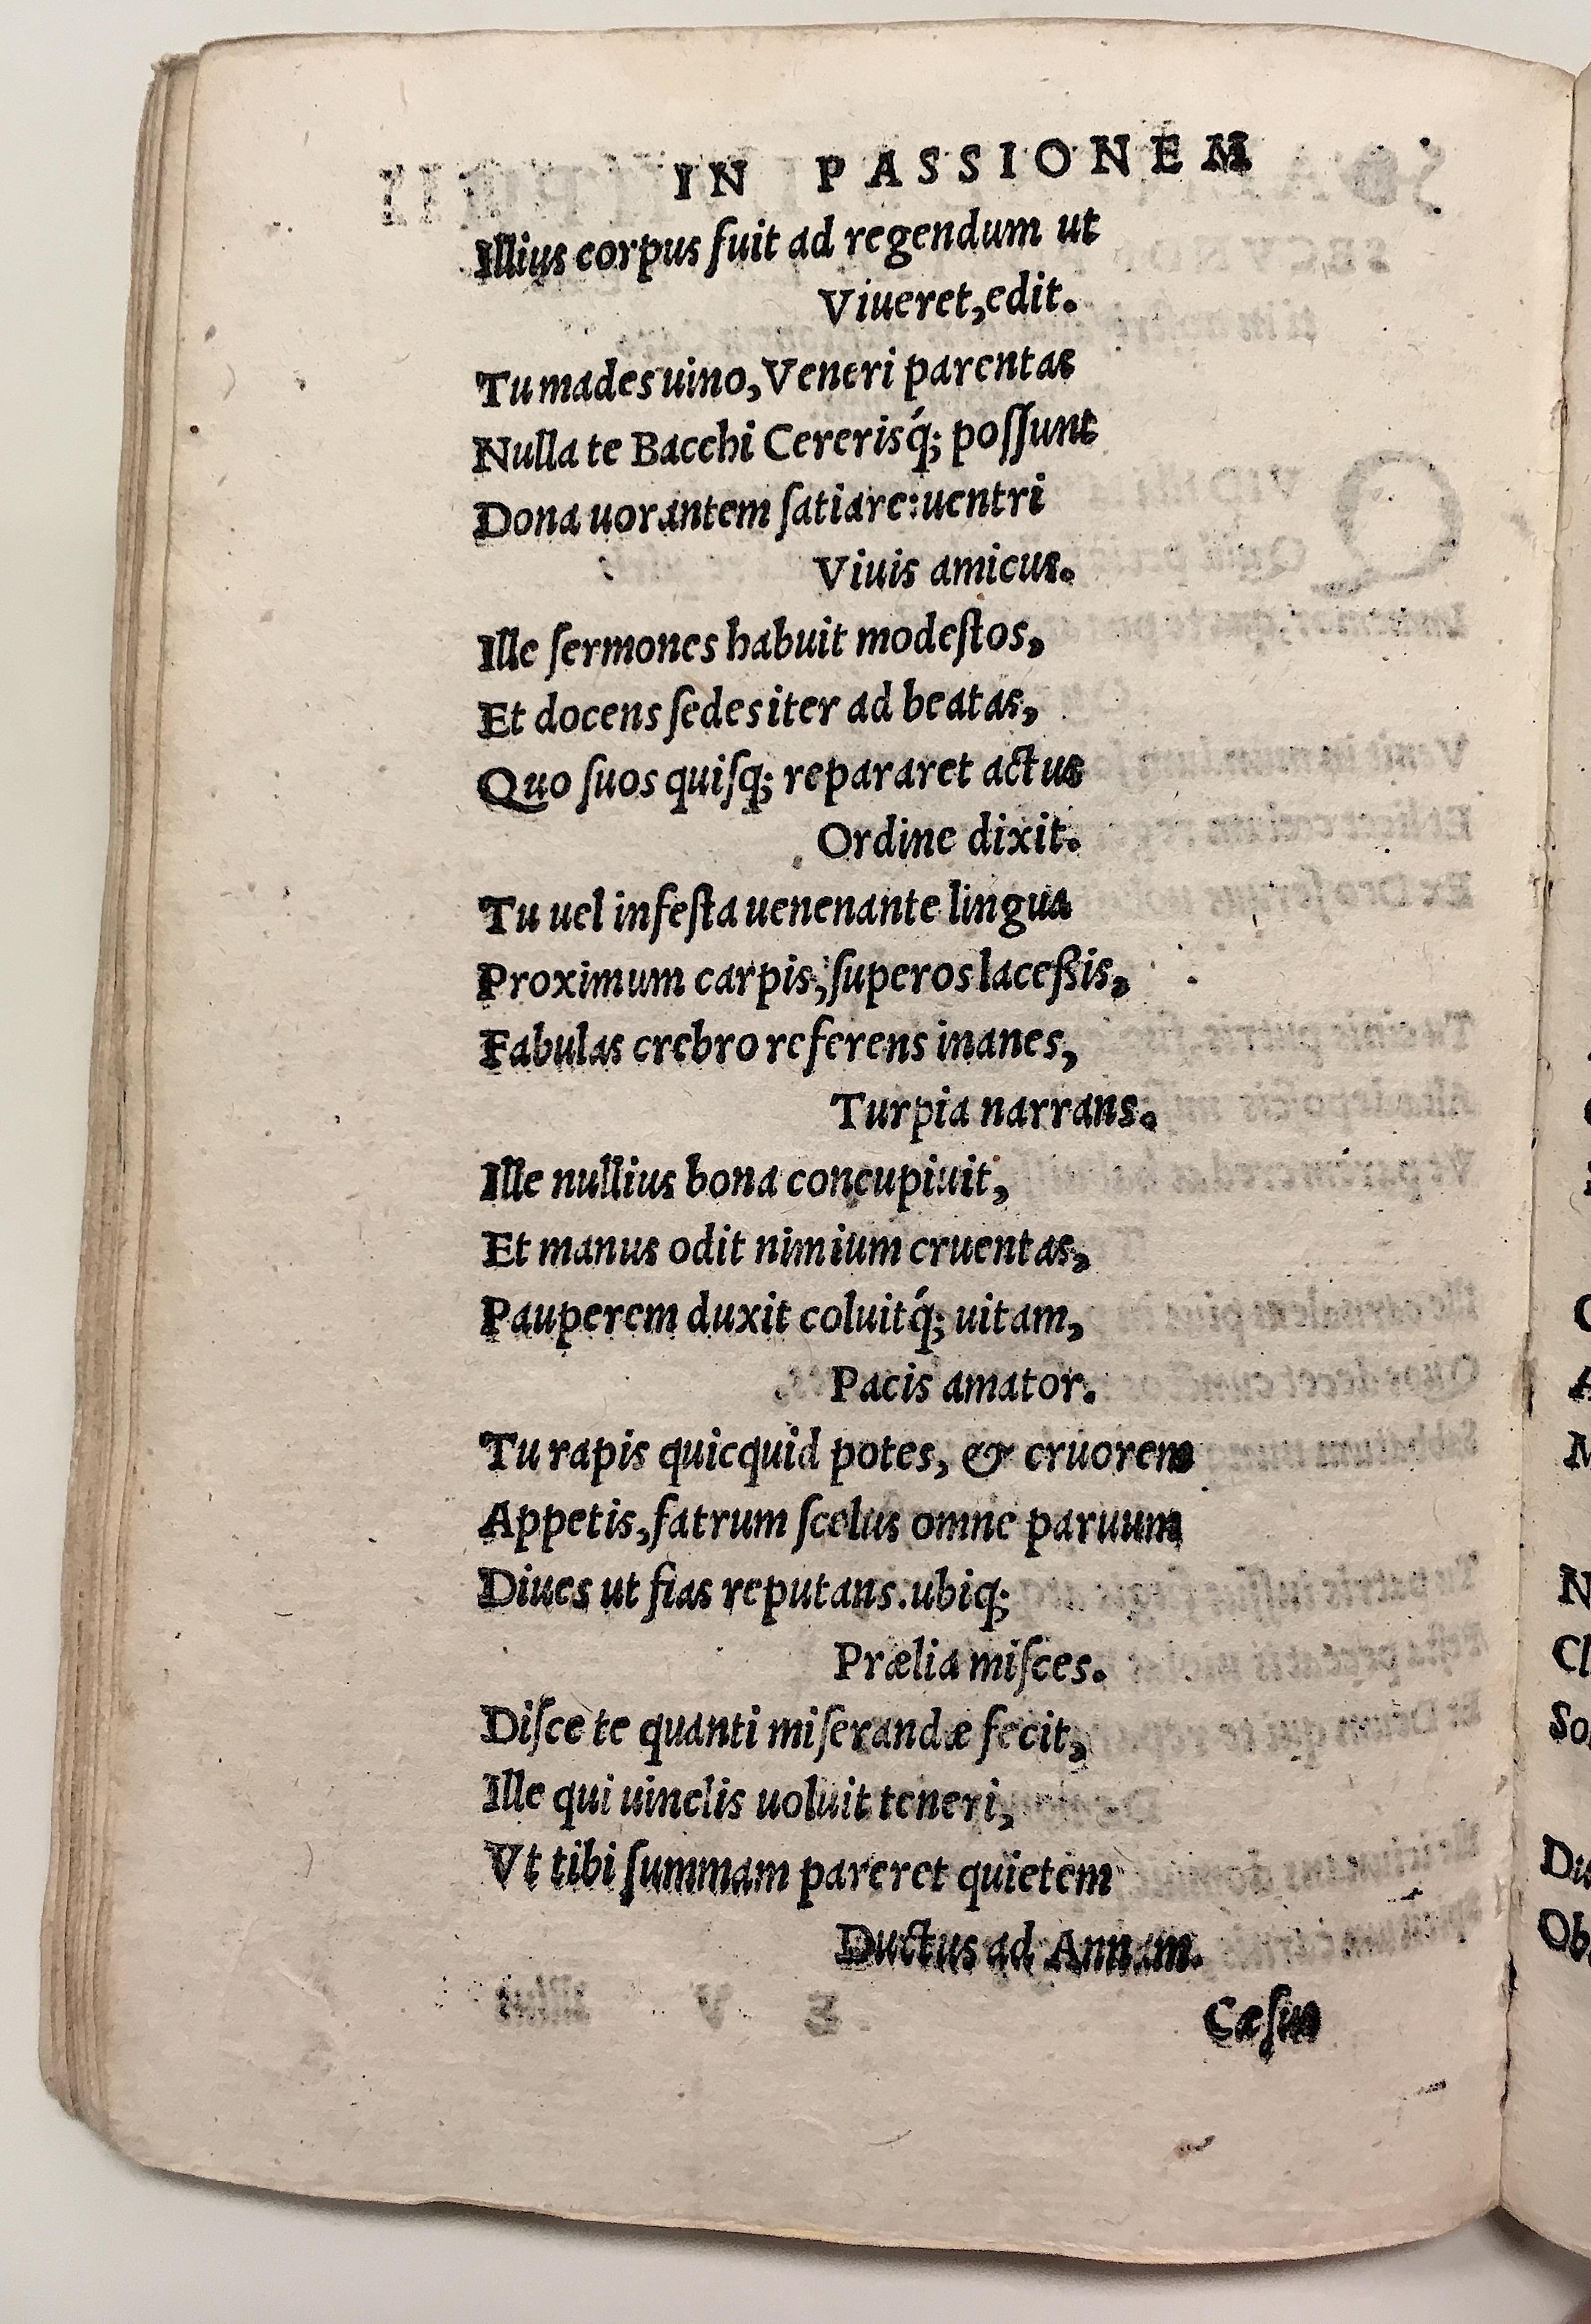 IN PASSIONEM
Illius corpus fuit ad regendum ut
Viueret, edit.
Tu mades uino, Veneri parentas
Nulla te Bacchi Cererisq́; poſſunt
Dona uorantem ſatiare: uentri
Viuis amicus.
Ille ſermones habuit modeſtos,
Et docens ſedes iter ad beatas,
Quo ſuos quiſq; repararet actus
Ordine dixit.
Tu uel infeſta uenenante lingua
Proximum carpis, ſuperos laceßis,
Fabulas crebro referens inanes,
Turpia narrans.
Ille nullius bona concupiuit,
Et manus odit nimium cruentas,
Pauperem duxit coluitq́; uitam,
Pacis amator.
Tu rapis quicquid potes, & cruorem
Appetis, fatrum ſcelus omne paruum
Diues ut fias reputans. ubiq;
Prælia miſces.
Diſce te quanti miſerandæ fecit,
Ille qui uinclis uoluit teneri,
Vt tibi ſummam pareret quietem
Ductus ad Annam.
Cæſus